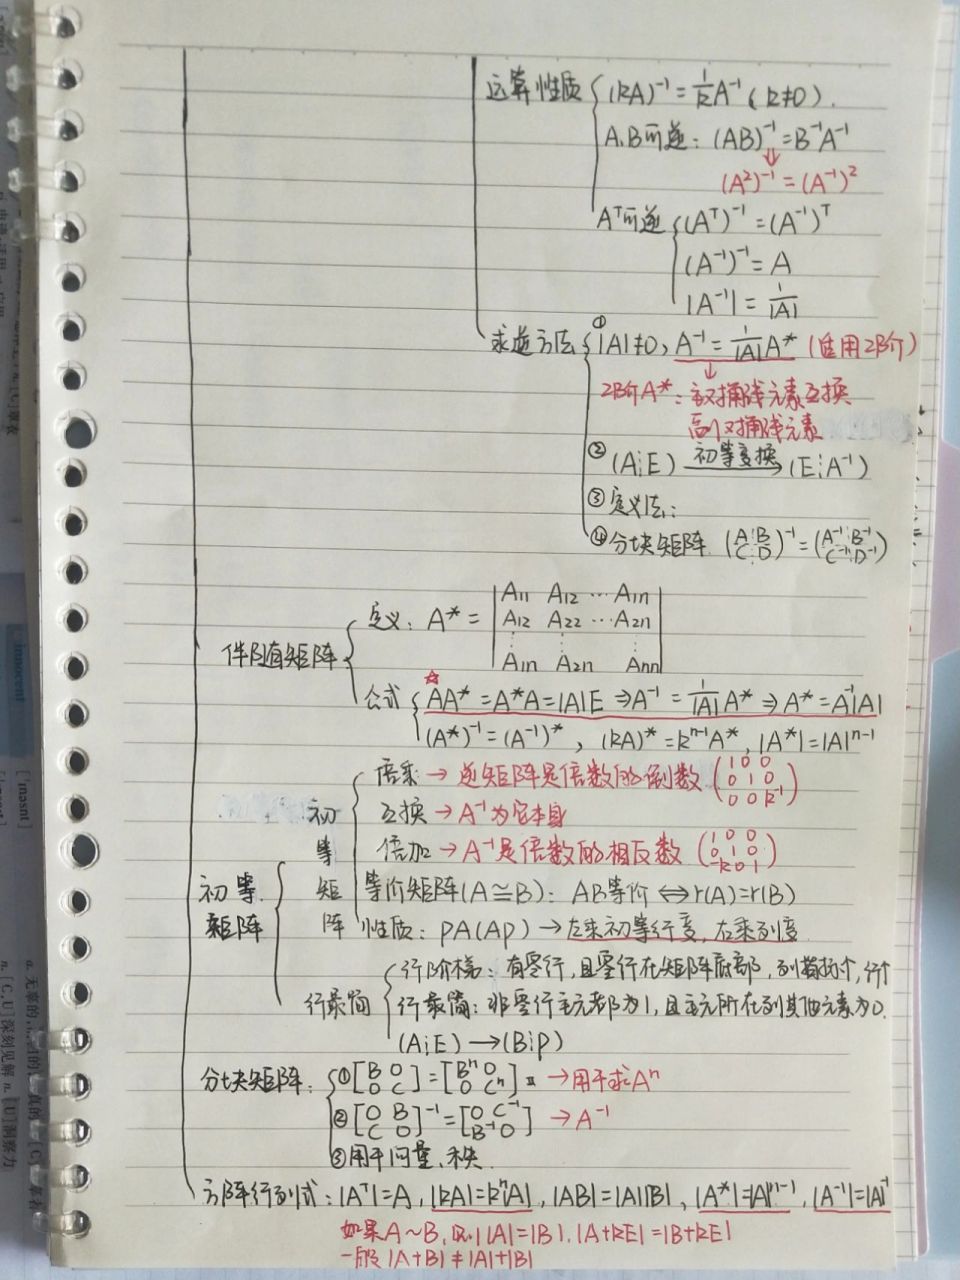 运算性质 (kA)⁻¹ = 1/k A⁻¹ (k≠0).
A.B可逆: (AB)⁻¹ = B⁻¹A⁻¹
(A²)⁻¹ = (A⁻¹)²
Aᵀ可逆 (Aᵀ)⁻¹ = (A⁻¹)ᵀ
(A⁻¹)⁻¹ = A
|A⁻¹| = 1/|A|
求逆方法 ① |A|≠0, A⁻¹ = 1/|A| A* (适用2阶)
2阶A*: 主对角线元素互换
副对角线元素
② (A¦E) 初等变换→ (E¦A⁻¹)
③ 定义法:
④ 分块矩阵 (A¦B C¦D)⁻¹ = (A⁻¹¦B⁻¹ C⁻¹¦D⁻¹)
伴随矩阵 定义: A* = | A₁₁ A₁₂ … A₁n
A₁₂ A₂₂ … A₂n
⋮ ⋮ ⋮
A₁n A₂n Ann |
公式 ☆ AA* = A*A = |A|E ⇒ A⁻¹ = 1/|A| A* ⇒ A* = A⁻¹|A|
(A*)⁻¹ = (A⁻¹)*, (kA)* = kⁿ⁻¹A*, |A*| = |A|ⁿ⁻¹
初等矩阵
初等矩阵
倍乘 → 逆矩阵是倍数的倒数 (1 0 0 0 1 0 0 0 k⁻¹)
互换 → A⁻¹为它本身
倍加 → A⁻¹是倍数的相反数 (1 0 0 0 1 0 -k 0 1)
等价矩阵(A≅B): AB等价 ⇔ r(A)=r(B)
性质: PA(AP) → 左乘初等行变, 右乘列变
行最简 行阶梯: 有零行, 且零行在矩阵底部, 列 行
行最简: 非零行主元都为1, 且主元所在列其他元素为0.
(A¦E) → (B¦P)
分块矩阵: ① [B O O C] = [Bⁿ O O Cⁿ] → 用于求Aⁿ
② [O B C O]⁻¹ = [O C⁻¹ B⁻¹ O] → A⁻¹
③ 用于向量、秩
方阵行列式: |Aᵀ|=A, |kA|=kⁿ|A|, |AB|=|A||B|, |A*|=|A|ⁿ⁻¹, |A⁻¹|=|A|⁻¹
如果A~B, 则|A|=|B|. |A+kE|=|B+kE|
一般|A+B|≠|A|+|B|